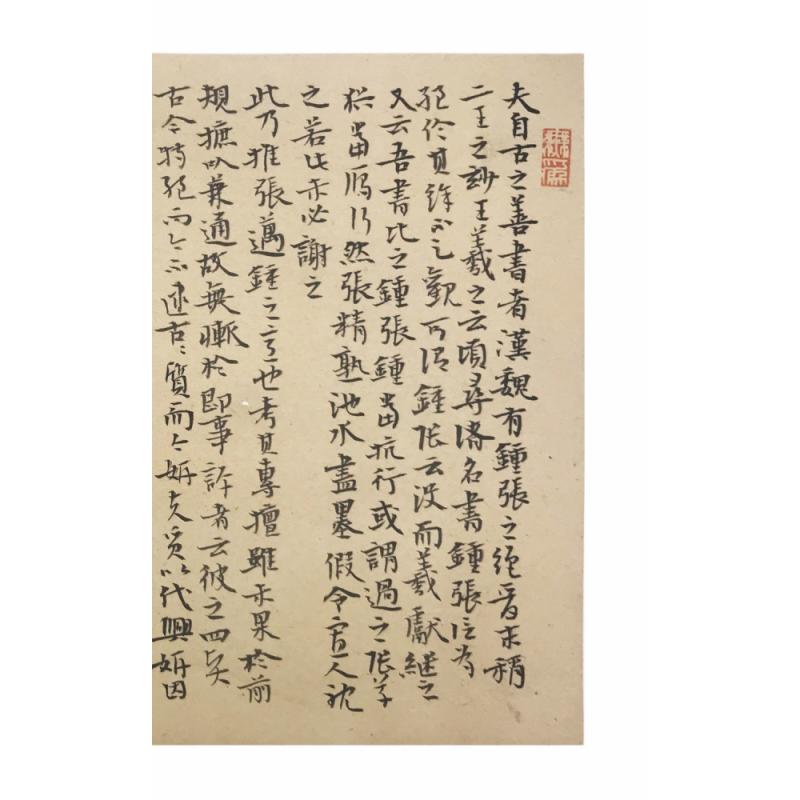 夫自古之善書者漢魏有鍾張之絕晉末稱
二王之妙王羲之云頃尋諸名書鍾張信為
絕倫其餘不足觀可謂鍾張云沒而羲獻繼之
又云吾書比之鍾張鍾當抗行或謂過之張草
猶當鴈行然張精熟池水盡墨假令寡人耽
之若此未必謝之
此乃推張邁鍾之意也考其專擅雖未果於前
規摭以兼通故無慚於即事評者云彼之四賢
古今特絕而今不逮古〻質而今妍夫質以代興妍因